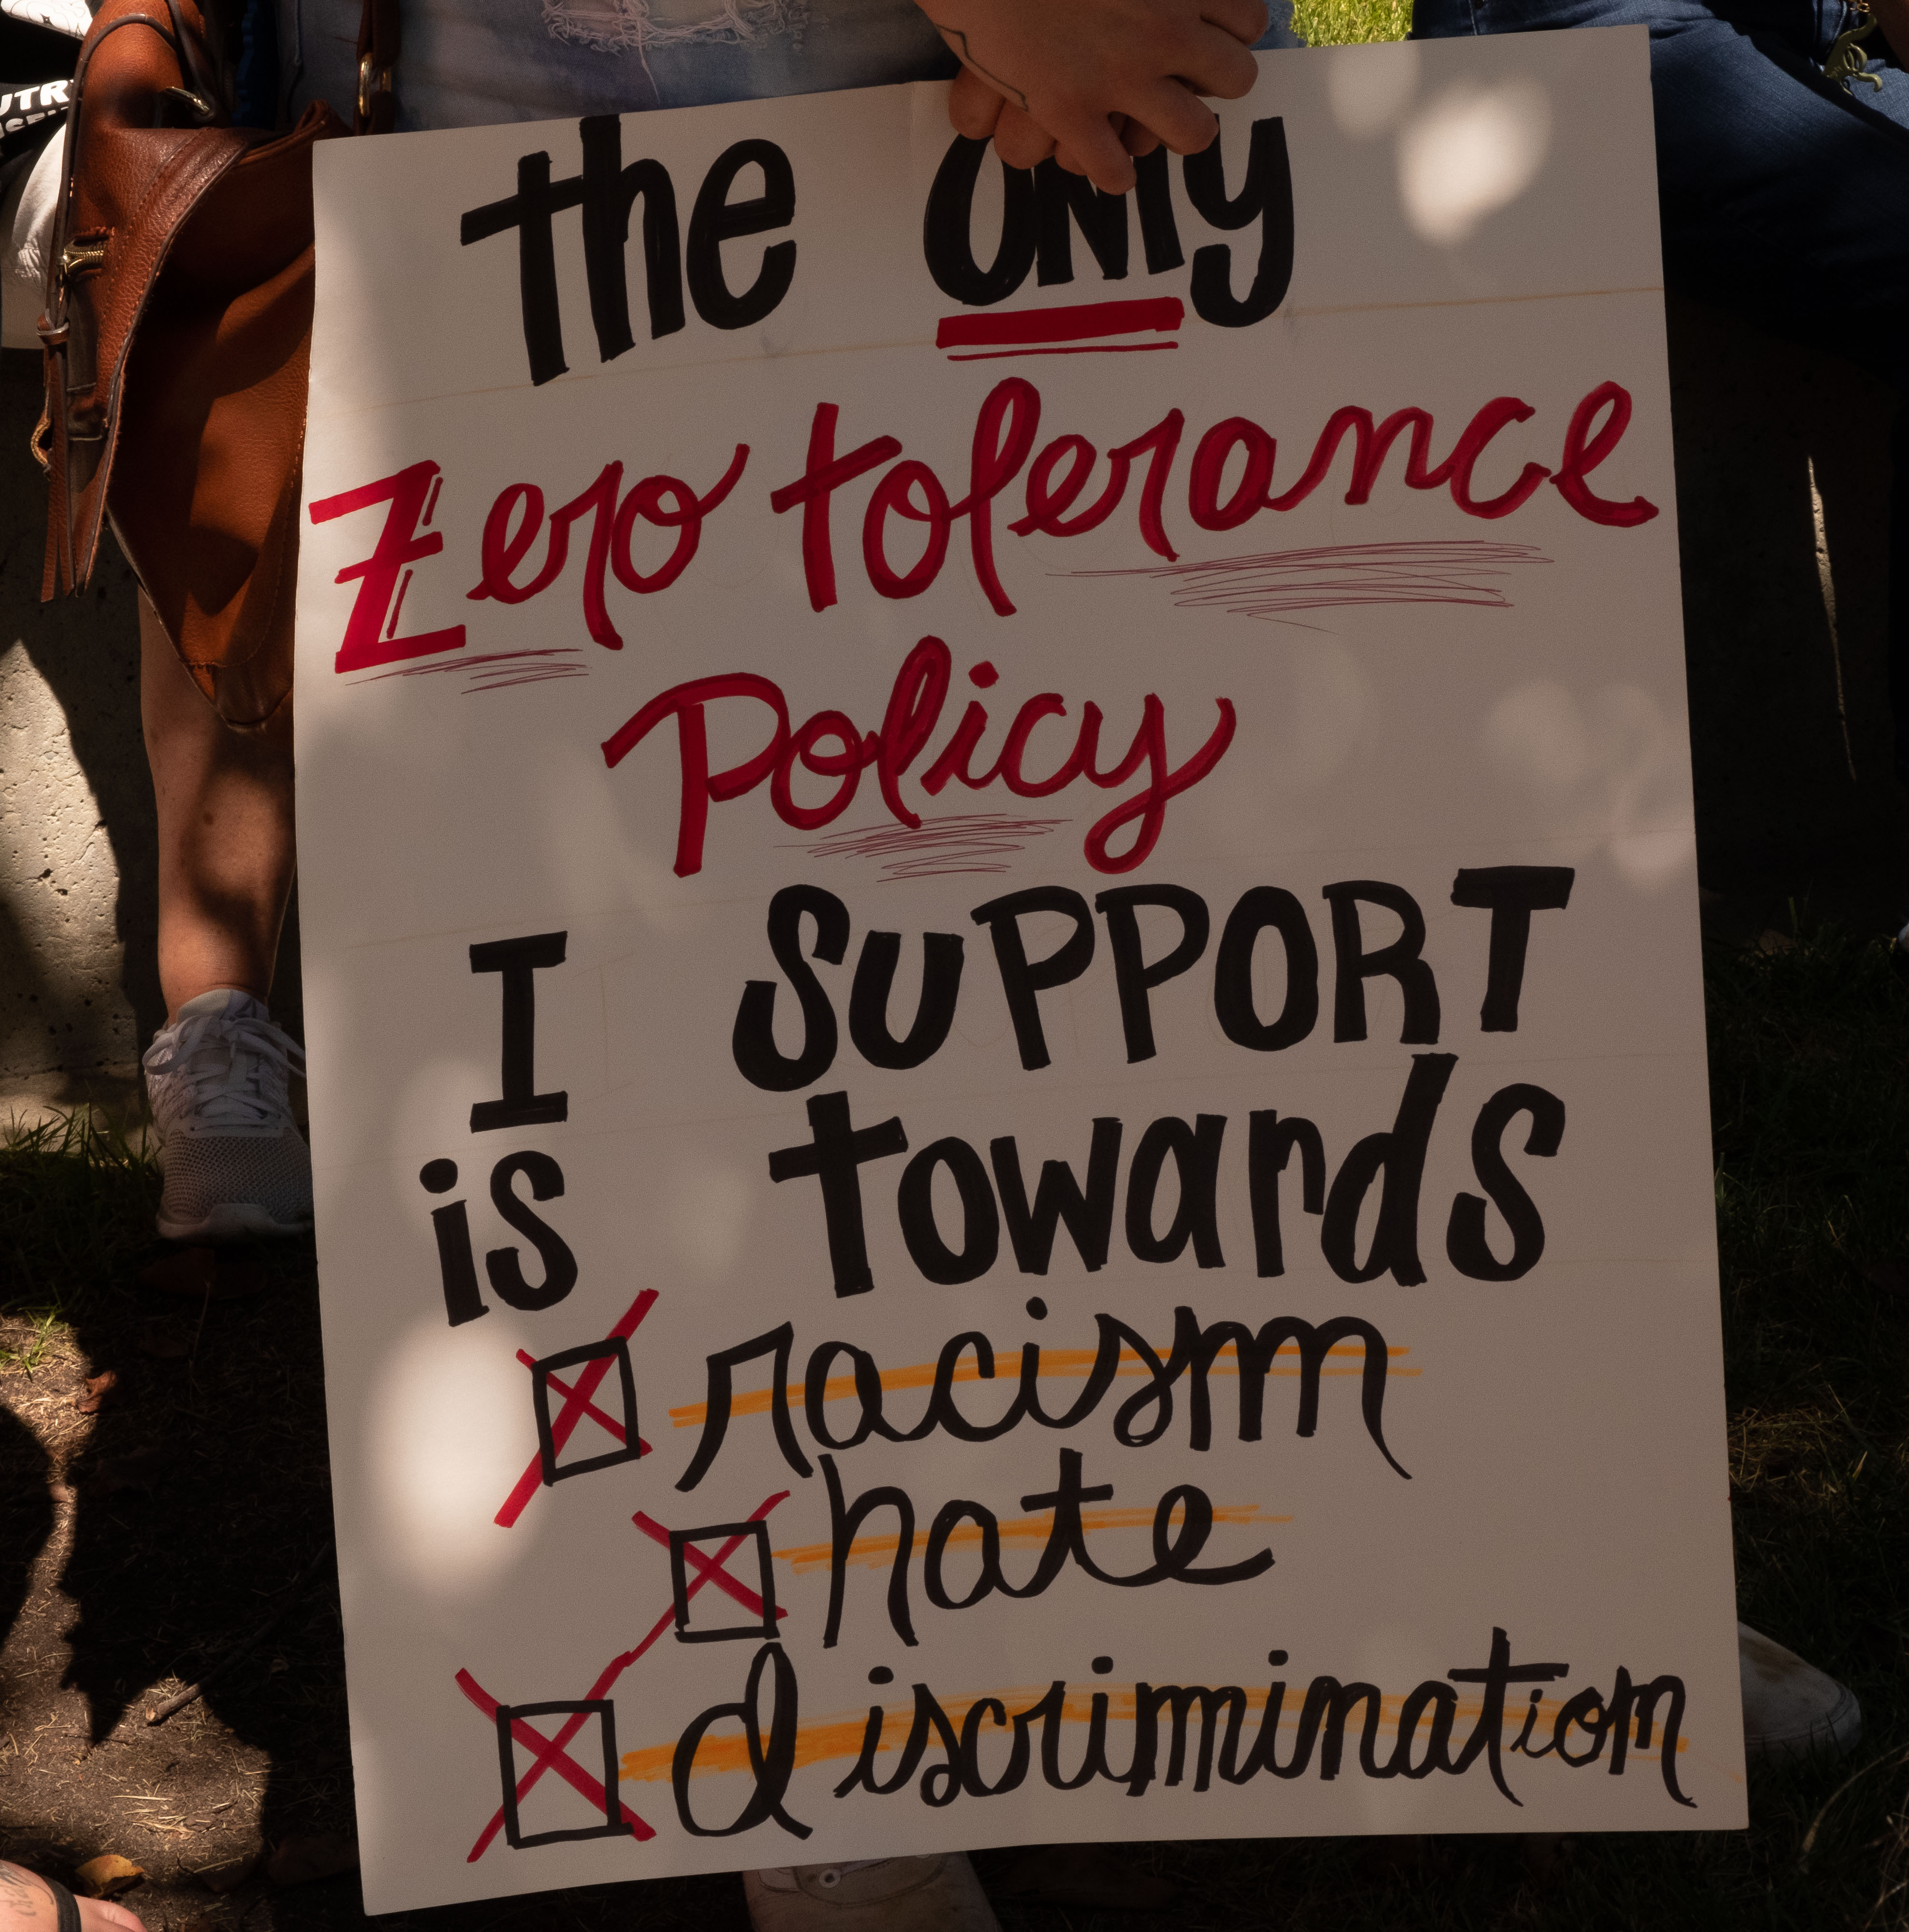 the ONLY
Zero tolerance
Policy
I SUPPORT
is towards
racism
hate
discrimination